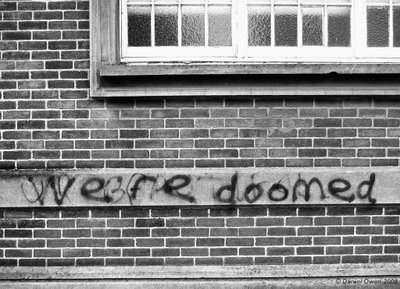 We're doomed
© Daniel Owen 2008